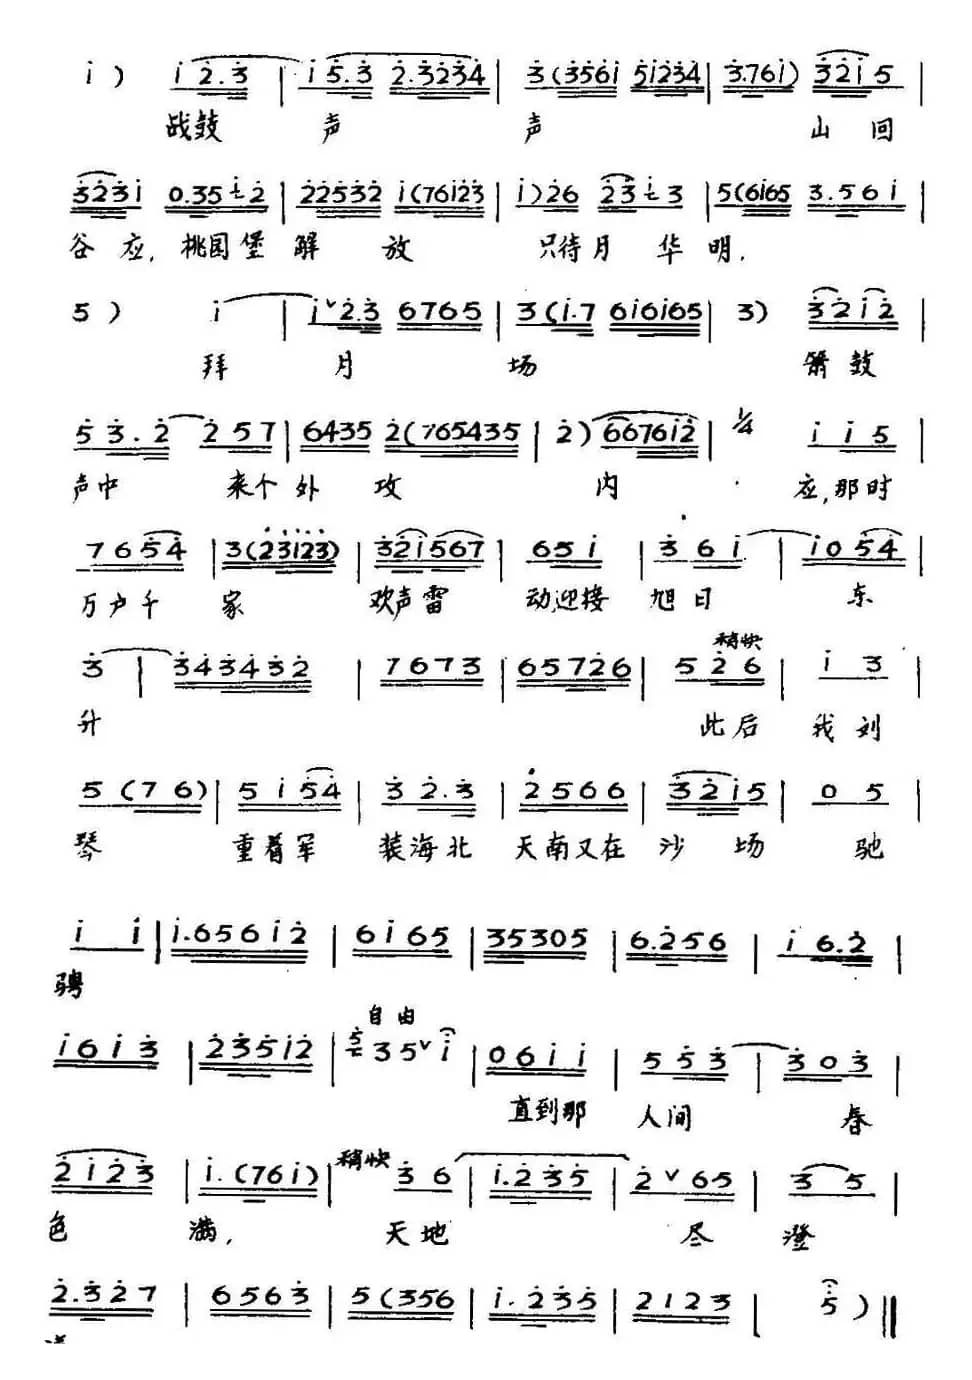 i ) i 2.3 | i 5.3 2.3234 | 3 (356i 5i234 | 3.76i) 32i5 |
战鼓 声 声 山 回
323i 0.35 i 2 | 22532 i(76i23 | i)26 23 i 3 | 5(6i65 3.56i |
谷 应, 桃园堡 解 放 只待月 华 明.
5 ) i | i ˅2.3 6765 | 3 (i.7 6i6i65 | 3) 32i2 |
拜 月 场 箫 鼓
5 3.2 2 5 7 | 6435 2(765435 | 2) 6676i2 | 1/4 i i 5 |
声中 来个 外 攻 内 应,那时
7 6 5 4 | 3(23i23) | 32i567 | 6 5 i | 3 6 i | i 0 5 4 |
万户千 家 欢声雷 动,迎接 旭日 东
稍快
3 | 343432 | 7673 | 65726 | 5 2 6 | i 3 |
升 此后 我刘
5 (7 6) | 5 i 5 4 | 3 2.3 | 2566 | 32i5 | 0 5 |
琴 重着军 装海北 天南又在 沙 场 驰
i i | i.656i2 | 6i65 | 35305 | 6.256 | i 6.2 |
骋
自由
i6i3 | 235i2 | 5 3 5˅ i | 06ii | 5 5 3 | 3 0 3 |
直到那 人间 春
2i23 | i.(76i) | 稍快 3 6 | i.235 | 2 ˅ 65 | 3 5 |
色 满, 天地 尽 澄
2.327 | 6563 | 5(356 | i.235 | 2123 | 5 ) ‖